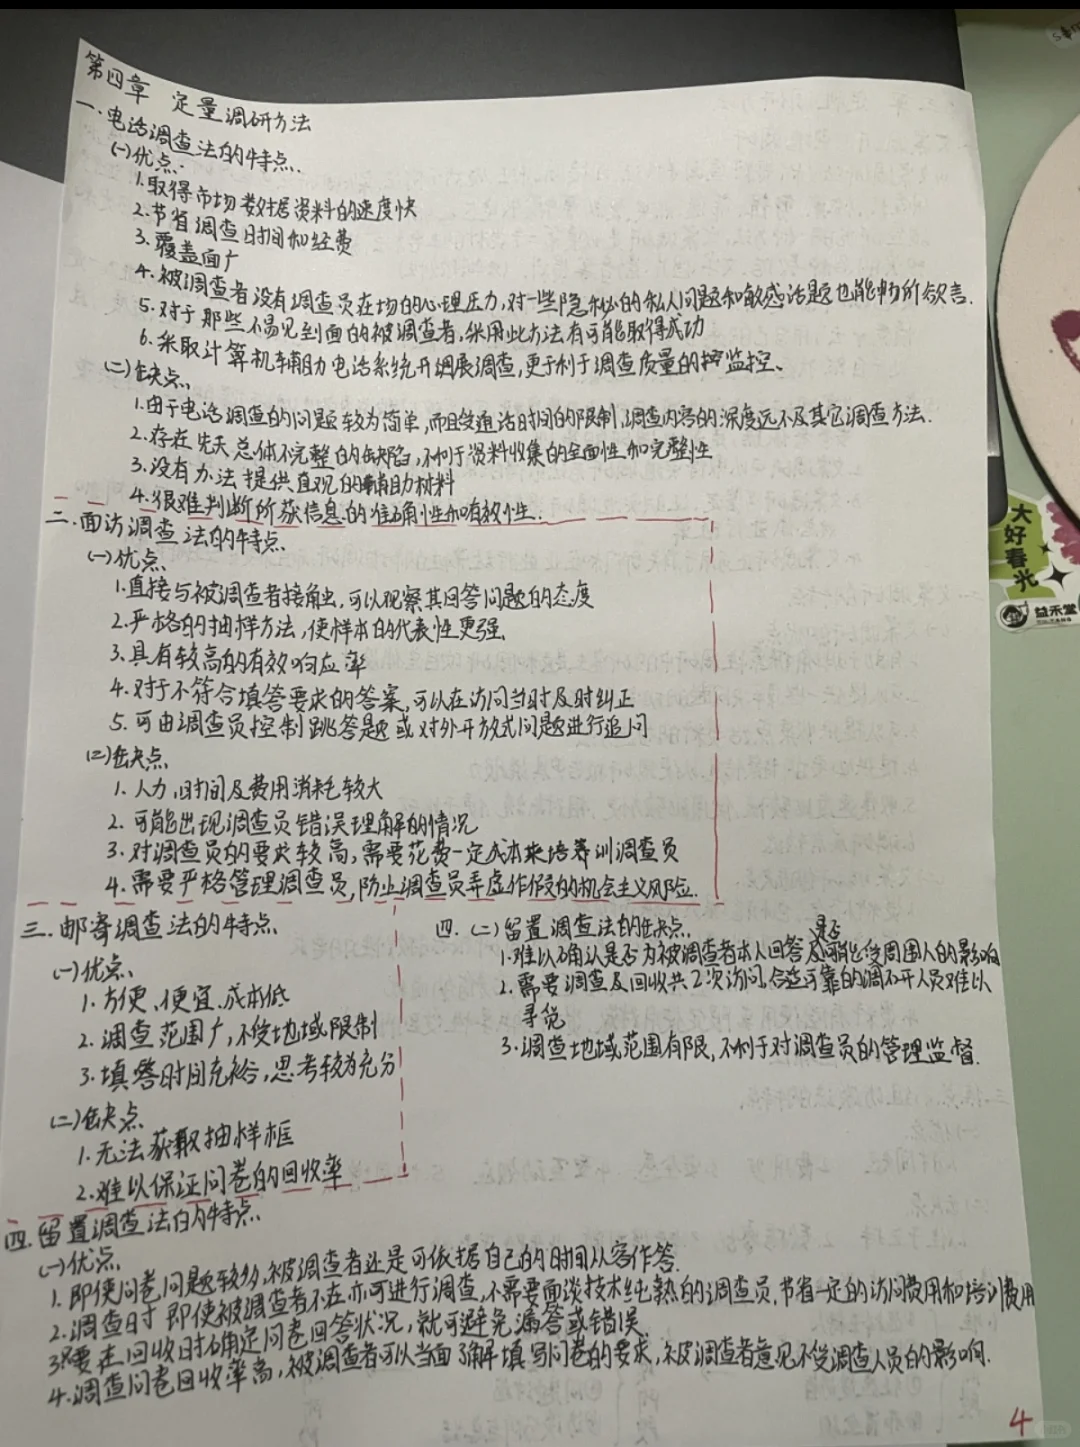 第四章 定量调研方法
一、电话调查法的特点、
(一)优点、
1.取得市场数据资料的速度快
2.节省调查时间和经费
3.覆盖面广
4.被调查者没有调查员在场的心理压力,对一些隐秘的私人问题和敏感话题也能畅所欲言.
5.对于那些不易见到面的被调查者,采用此方法有可能取得成功
6.采取计算机辅助电话系统开展调查,更于利于调查质量的监控、
(二)缺点、
1.由于电话调查的问题较为简单,而且受通话时间的限制,调查内容的深度远不及其它调查方法.
2.存在先天总体不完整的缺陷,不利于资料收集的全面性和完整性
3.没有办法提供直观的辅助材料
4.很难判断所获信息的准确性和有效性.
二.面访调查法的特点、
(一)优点、
1.直接与被调查者接触,可以观察其回答问题的态度
2.严格的抽样方法,使样本的代表性更强、
3.具有较高的有效响应率
4.对于不符合填答要求的答案,可以在访问当时及时纠正
5.可由调查员控制跳答题或对外开放式问题进行追问
(二)缺点、
1.人力,时间及费用消耗较大
2.可能出现调查员错误理解的情况
3.对调查员的要求较高,需要花费一定成本来培训调查员
4.需要严格管理调查员,防止调查员弄虚作假的机会主义风险.
三.邮寄调查法的特点、
(一)优点、
1.方便、便宜、成本低
2.调查范围广,不受地域限制
3.填答时间充裕,思考较为充分
(二)缺点
1.无法获取抽样框
2.难以保证问卷的回收率
四.(二)留置调查法的缺点、
1.难以确认是否为被调查者本人回答及是否可能受周围人的影响
2.需要调查及回收共2次访问,合适可靠的调研人员难以
寻觅
3.调查地域范围有限,不利于对调查员的管理监督.
四.留置调查法的特点、
(一)优点
1.即使问卷问题较多,被调查者还是可依据自己的时间从容作答.
2.调查时即使被调查者不在亦可进行调查,不需要面谈技术纯熟的调查员,节省一定的访问费用和培训费用
3.只要在回收时确定问卷回答状况,就可避免漏答或错误、
4.调查问卷回收率高,被调查者可以当面了解填写问卷的要求,被调查者意见不受调查人员的影响.
4
大好春光
益禾堂